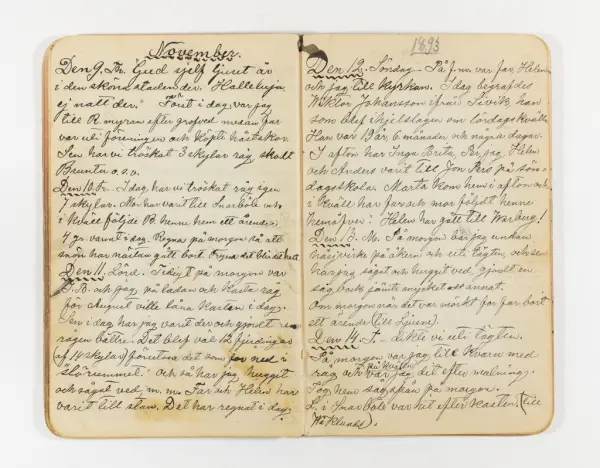 November.
Den 9. Th. "Gud sjelf ljuset är
i den sköna staden der. Halleluja,
ej natt der." Först i dag var jag
till R. myran efter grofved medan far
var uti föreningen och köpte hästskor.
Sen har vi tröskat 3 skylar råg, skodt
Brunta o.s.v.
Den 10. Fr. I dag har vi tröskat råg igen
7 skylar. Mor har varit till Snarböle och
i kväll följde B. henne hem ett ärende.
4 gr. varmt i dag. Regna på morgon så att
snön har nästan gått bort.
Den 11. Lörd. Tidigt på morgon var
B. och jag på ladan och kasta råg
för August ville låna kastan i dag.
Sen i dag har jag varit der och gjordt
rågen bättre. Det blef väl 12 fjerdingar
(af 14 skylar) förutna det som for ned i
"slörummel." Och så har jag huggit
och sågat ved m.m. Far och Helen har
varit till stan. Det har regnat i dag.
1893
Den 12. Söndag. På f.m. var far, Helen
och jag till kyrkan. I dag begrafdes
Wiktor Johansson ifrån Tivik, han
som blef ihjelslagen om lördagskväll.
Han var 19 år, 6 månader och några dagar.
I afton har Inga Brita, Per, jag, Helen
och Anders varit till Jon Pers på sön-
dagsskola. Marta kom hem i afton och
i kväll har far och mor följdt henne
hemåfver. Helen har gått till Warberg!
Den 13. M. På morgon bar jag undan
på åkern och uti tägten, och sen
har jag sågat och huggit ved, gjordt en
såg bock jämte mycket att annat.
Om morgon när det var mörkt for far bort
ett ärende (till Ljusne).
Den 14. T. – dikte vi uti tägten.
På morgon var jag till kvarn med
råg och på kvällen var jag dit efter malning.
Tog hem sågspån på morgon.
L. i Snarböle var hit efter kasten, (till
Wiklunds).